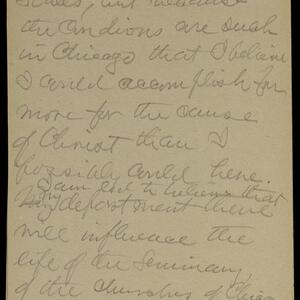 but because
the condions are such
in Chicago that I believe
I could accomplish far
more for the cause
of Christ than I
possibly could here.
I am led to believe that
My department there
will influence the
life of the Seminary,
of the churches of Chicago